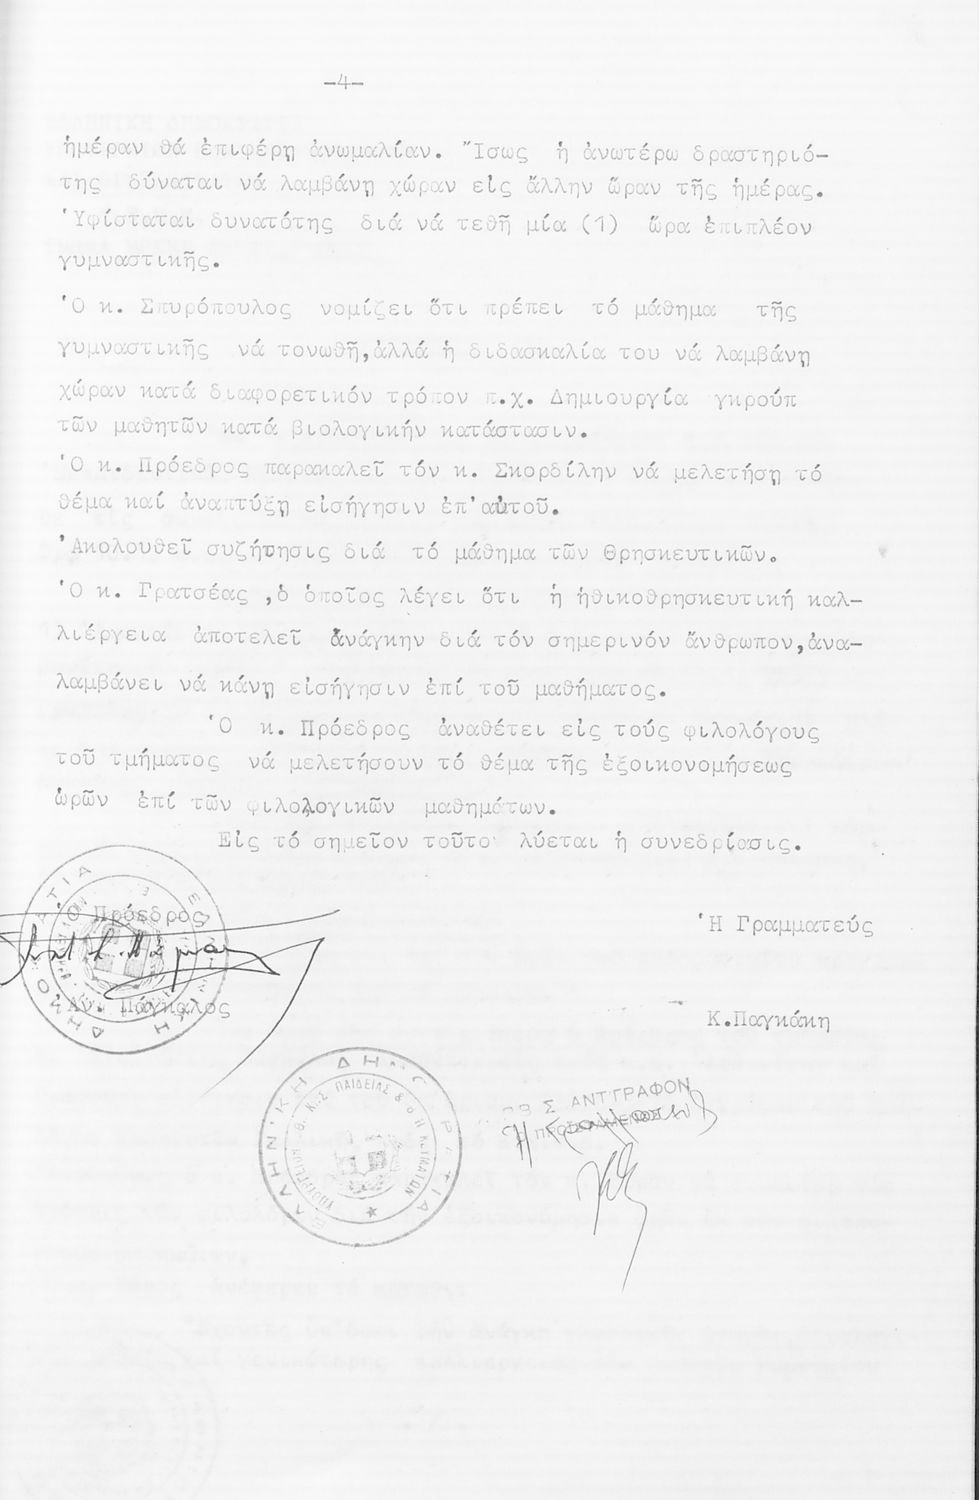 -4-
ἡμέραν θά ἐπιφέρῃ ἀνωμαλίαν. Ἴσως ἡ ἀνωτέρω δραστηριό-
της δύναται νά λαμβάνῃ χώραν εἰς ἄλλην ὥραν τῆς ἡμέρας.
Ὑφίσταται δυνατότης διά νά τεθῆ μία (1) ὥρα ἐπιπλέον
γυμναστικῆς.
Ὁ κ. Σπυρόπουλος νομίζει ὅτι πρέπει τό μάθημα τῆς
γυμναστικῆς νά τονωθῆ,ἀλλά ἡ διδασκαλία του νά λαμβάνῃ
χώραν κατά διαφορετικόν τρόπον π.χ. Δημιουργία γκρούπ
τῶν μαθητῶν κατά βιολογικήν κατάστασιν.
Ὁ κ. Πρόεδρος παρακαλεῖ τόν κ. Σκορδίλην νά μελετήσῃ τό
θέμα καί ἀναπτύξῃ εἰσήγησιν ἐπ'αὐτοῦ.
Ἀκολουθεῖ συζήτησις διά τό μάθημα τῶν Θρησκευτικῶν.
Ὁ κ. Γρατσέας ,ὁ ὁποῖος λέγει ὅτι ἡ ἠθικοθρησκευτική καλ-
λιέργεια ἀποτελεῖ ἀνάγκην διά τόν σημερινόν ἄνθρωπον,ἀνα-
λαμβάνει νά κάνῃ εἰσήγησιν ἐπί τοῦ μαθήματος.
Ὁ κ. Πρόεδρος ἀναθέτει εἰς τούς φιλολόγους
τοῦ τμήματος νά μελετήσουν τό θέμα τῆς ἐξοικονομήσεως
ὡρῶν ἐπί τῶν φιλολογικῶν μαθημάτων.
Εἰς τό σημεῖον τοῦτο λύεται ἡ συνεδρίασις.
Ὁ Πρόεδρος
Ἡ Γραμματεύς
Ἀν. Πάγκαλος
Κ.Παγκάκη
ΑΝΤΙΓΡΑΦΟΝ